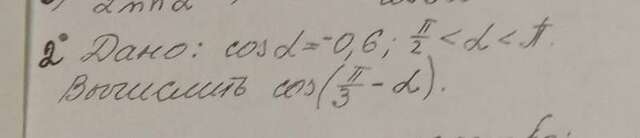 2° Дано: cos α = -0,6; π/2 < α < π.
Вычислить cos(π/3 - α).